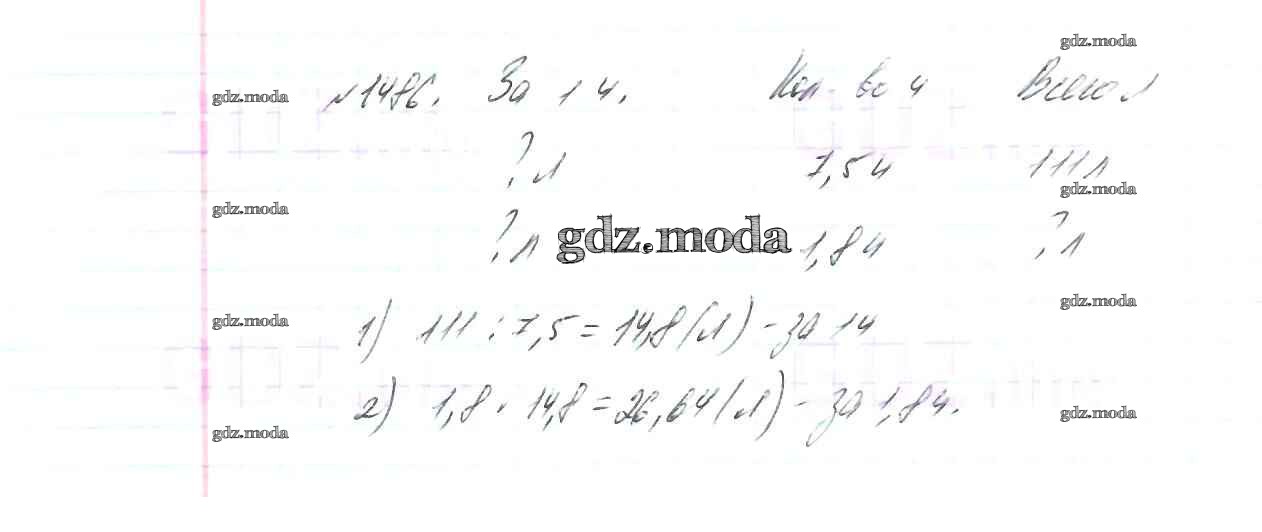 gdz.moda
№1486. За 1 ч. Кол-во ч Всего л
gdz.moda
? л 7,5 ч 111 л
gdz.moda
gdz.moda
? л gdz.moda 1,8 ч ? л
gdz.moda
1) 111 : 7,5 = 14,8 (л) - за 1 ч
gdz.moda
2) 1,8 · 14,8 = 26,64 (л) - за 1,8 ч.
gdz.moda
gdz.moda